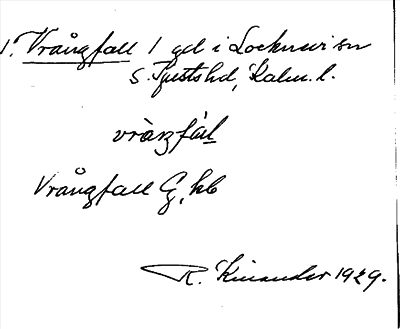 1. Vrångfall 1 gd i Locknevi sn
S. Tjusts hd, Kalm. l.
vràŋfál
Vrångfall G, kb
R. Kinander 1929.